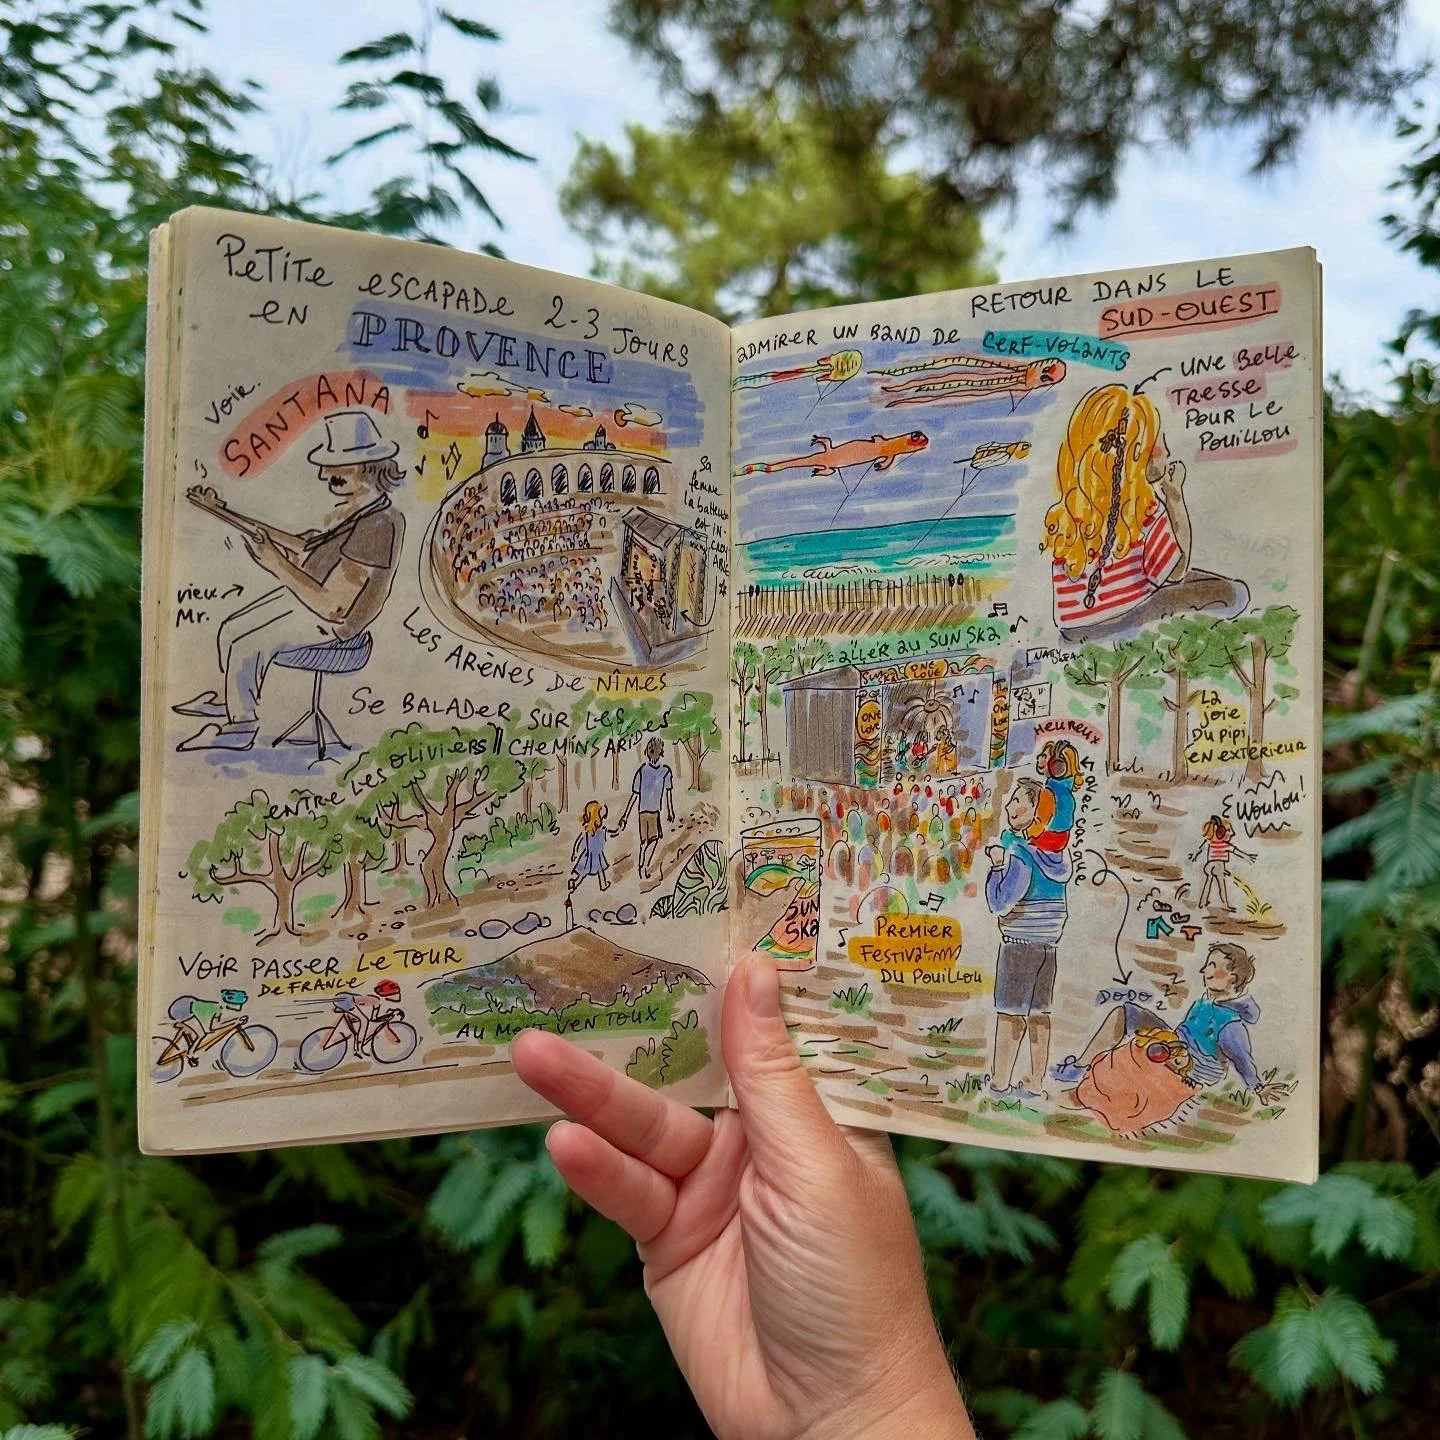 PETITE ESCAPADE 2-3 JOURS
EN PROVENCE
VOIR
SANTANA
vieux
Mr.
Sa
femme
la batteuse
est IN-
CROY
ABLE
!
LES ARÈNES DE NÎMES
SE BALADER SUR LES
CHEMINS ARIDES
ENTRE LES OLIVIERS
VOIR PASSER LE TOUR
DE FRANCE
AU MONT VENTOUX
RETOUR DANS LE
SUD-OUEST
ADMIRER UN BAND DE CERF-VOLANTS
UNE BELLE
TRESSE
POUR LE
POUILLOU
ALLER AU SUN SKA
SUN SKA
ONE
LOVE
ONE
LOVE
HEUREUX
AVEC CASQUE
LA
JOIE
DU PIPI
EN EXTÉRIEUR
Wouhou!
SUN
SKA
PREMIER
FESTIVAL
DU POUILLOU
DODO